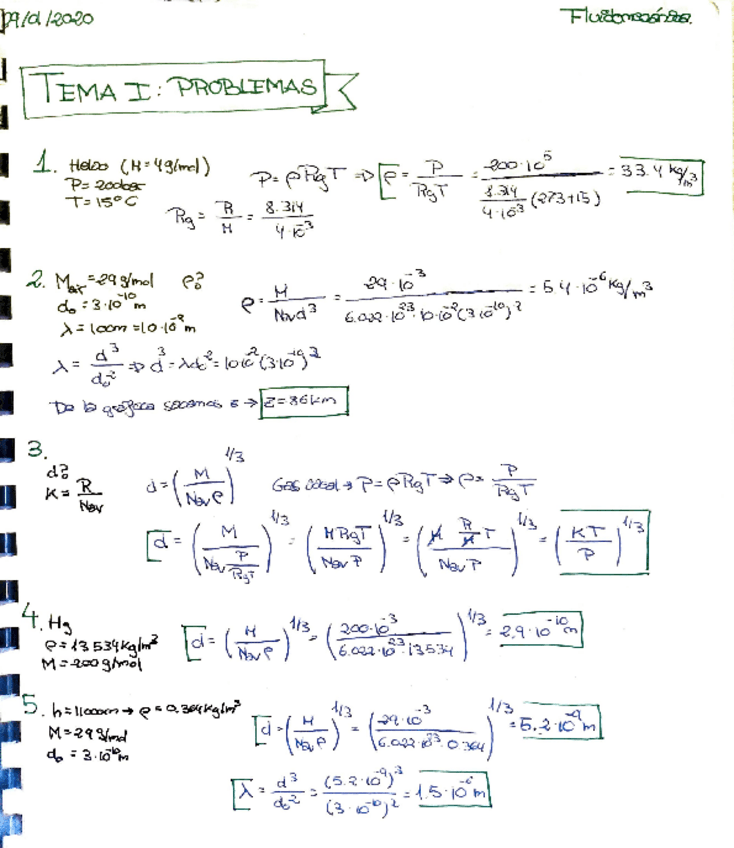 09/01/2020
Fluidomecánica.
TEMA I: PROBLEMAS
1. Helio (M=4g/mol)
P=200bar
T=15ºC
P=ρRgT ⇒ ρ = P/(RgT) = 200·10^5/((8.314/(4·10^-3))(273+15)) = 33.4 kg/m^3
Rg = R/M = 8.314/(4·10^-3)
2. Mair=29g/mol ρ?
d₀=3·10^-10 m
λ=10cm=10·10^-2 m
ρ = M/(Nav d^3) = 29·10^-3/(6.022·10^23·10·10^-2(3·10^-10)^2) = 5.4·10^-6 kg/m^3
λ = d^3/d₀^2 ⇒ d^3=λd₀^2=10·10^-2(3·10^-10)^2
De la gráfica sacamos z → z=86km
3.
d?
K = R/Nav
d = (M/(Nav ρ))^1/3 Gas ideal → P=ρRgT ⇒ ρ = P/(RgT)
d = (M/(Nav P/(RgT)))^1/3 = (MRgT/(Nav P))^1/3 = (M (R/M) T/(Nav P))^1/3 = (KT/P)^1/3
4. Hg
ρ=13534kg/m^3
M=200g/mol
d = (M/(Nav ρ))^1/3 = (200·10^-3/(6.022·10^23·13534))^1/3 = 2.9·10^-10 m
5. h=11000m → ρ=0.364kg/m^3
M=29g/mol
d₀=3·10^-10 m
d = (M/(Nav ρ))^1/3 = (29·10^-3/(6.022·10^23·0.364))^1/3 = 5.2·10^-9 m
λ = d^3/d₀^2 = (5.2·10^-9)^3/(3·10^-10)^2 = 1.5·10^-6 m